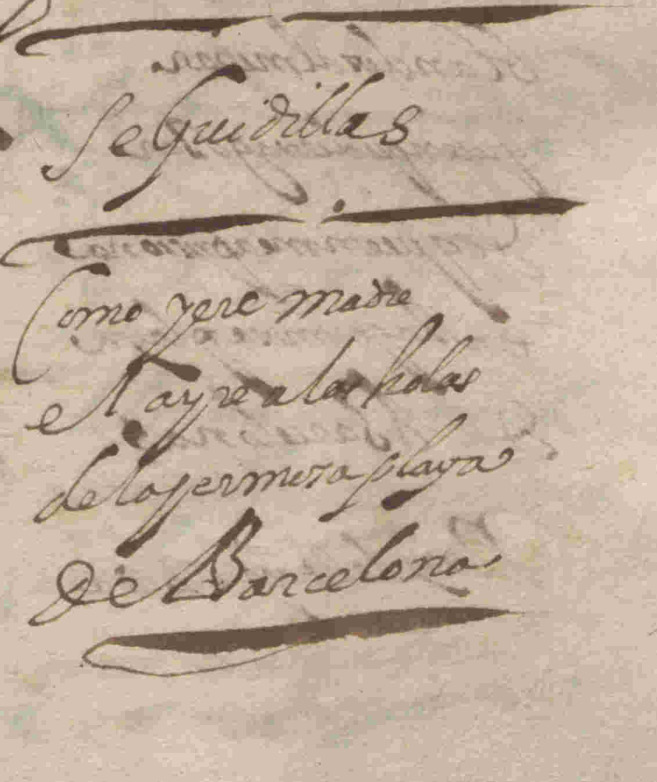 Seguidillas
Como yere madre
el ayre a las holas
de la yermosa playa
de Barcelona